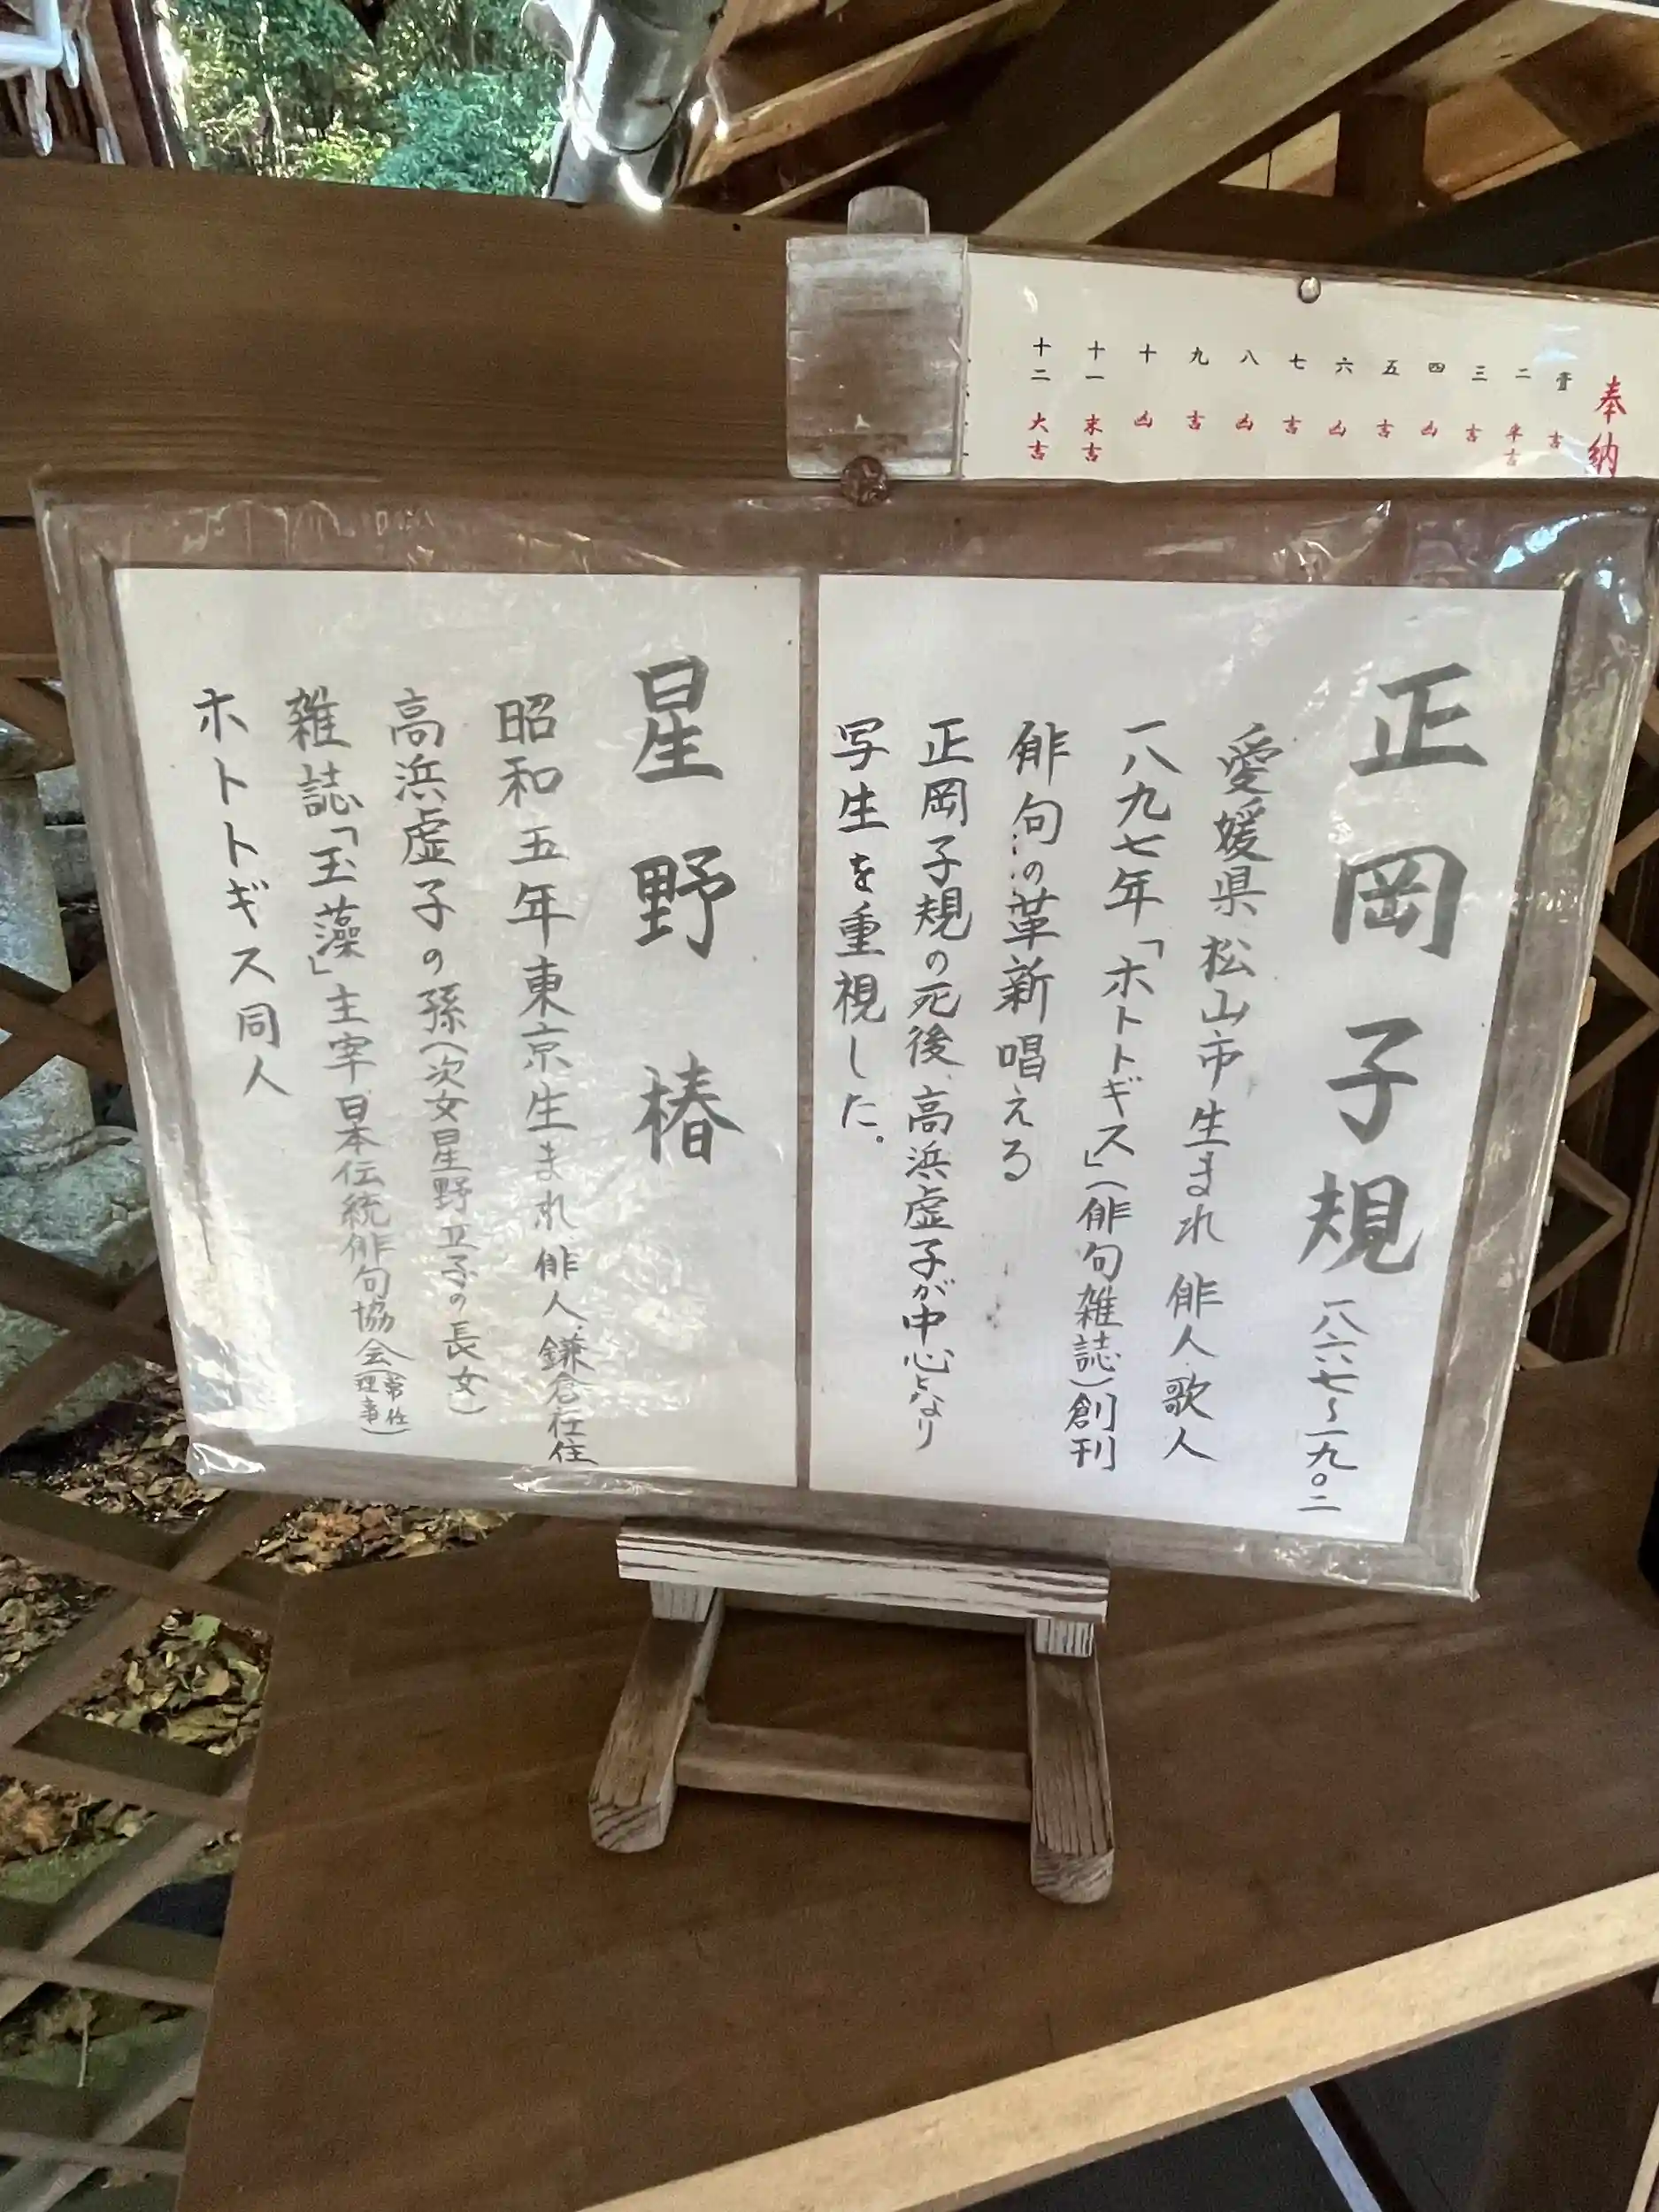 奉納
壹 吉
二 半吉
三 吉
四 凶
五 吉
六 凶
七 吉
八 凶
九 吉
十 凶
十一 末吉
十二 大吉
正岡子規 一八六七〜一九〇二
愛媛県松山市生まれ 俳人、歌人
一八九七年「ホトトギス」(俳句雑誌)創刊
俳句の革新唱える
正岡子規の死後、高浜虚子が中心となり
写生を重視した。
星野 椿
昭和五年東京生まれ、俳人、鎌倉在住
高浜虚子の孫(次女星野立子の長女)
雑誌「玉藻」主宰、日本伝統俳句協会(常任理事)
ホトトギス同人